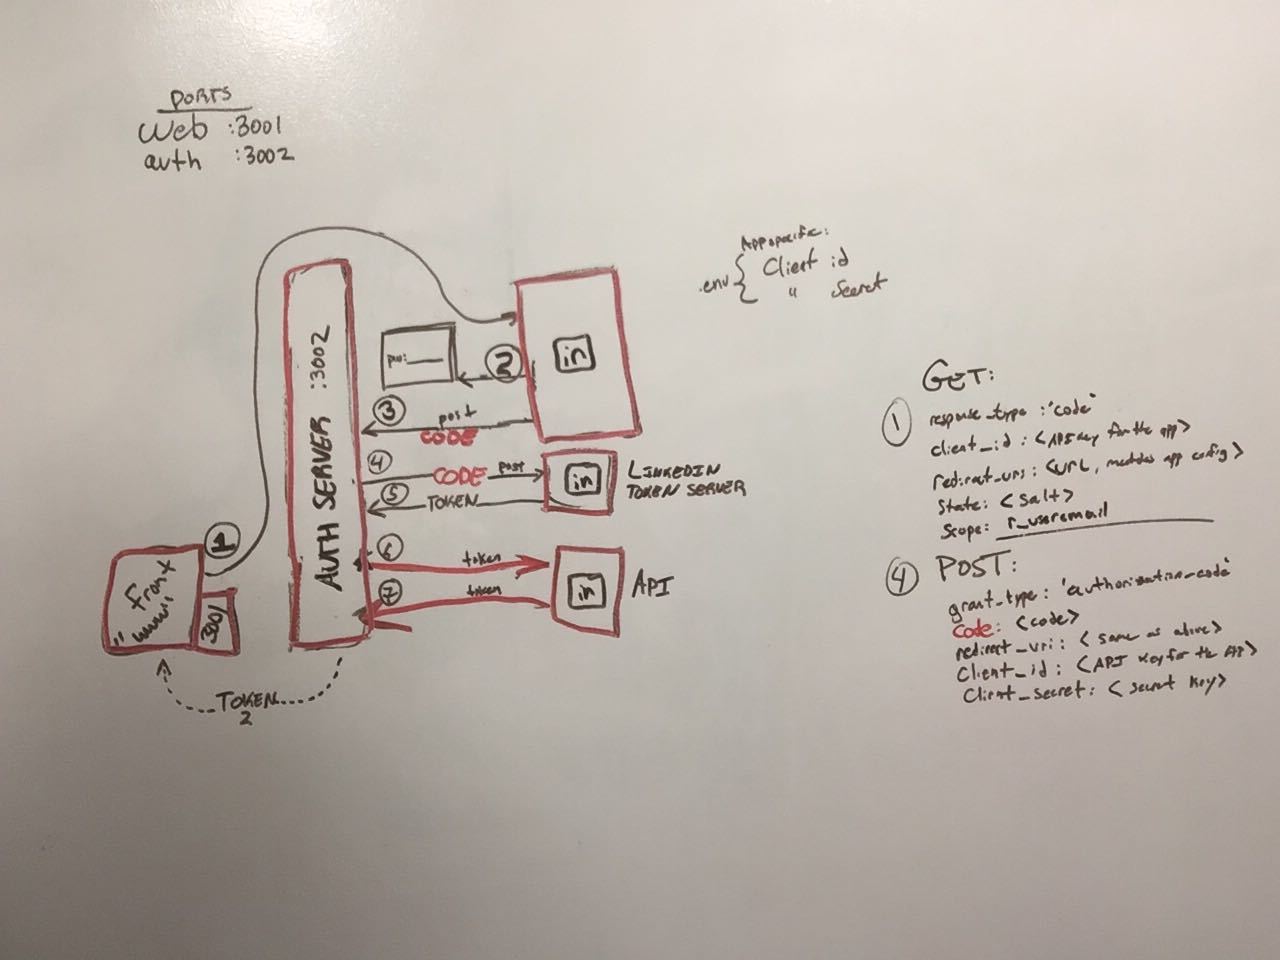 PORTS
Web :3001
auth :3002
App specific:
.env { Client id
" Secret
AUTH SERVER :3002
in
pw:
2
3
post
CODE
4
CODE post
in
LINKEDIN
TOKEN SERVER
5
TOKEN
6
token
in
API
7
token
1
Front
"www"
3001
TOKEN
2
GET:
1
response_type : "code"
client_id : <API key for the app>
redirect_uri : <URL, matches app config>
State: <salt>
Scope: r_useremail
4
POST:
grant_type : 'authorization_code'
Code: <code>
redirect_uri : <same as above>
Client_id : <API Key for the App>
Client_secret: <secret key>